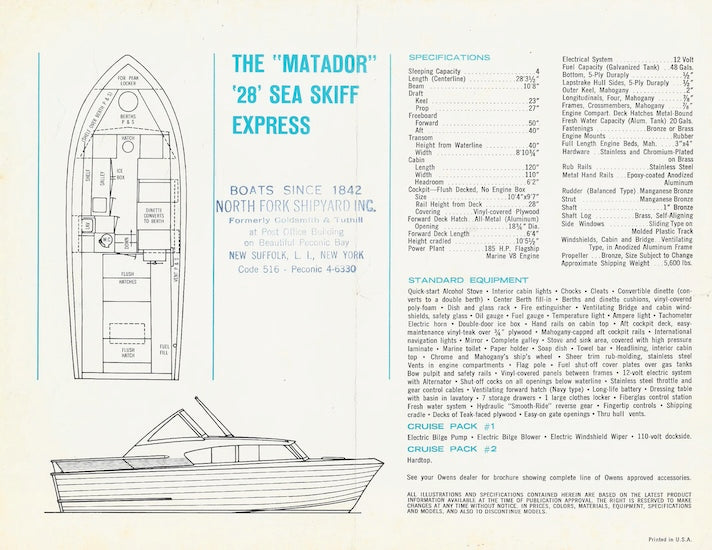 THE "MATADOR"
'28' SEA SKIFF
EXPRESS
BOATS SINCE 1842
NORTH FORK SHIPYARD INC.
Formerly Goldsmith & Tuthill
at Post Office Building
on Beautiful Peconic Bay
NEW SUFFOLK, L. I., NEW YORK
Code 516 - Peconic 4-6330
FOR PEAK
LOCKER
SHELF OVER BERTH P & S
BERTHS
P & S
HATCH
SHELF
GALLEY
ICE
BOX
DINETTE
CONVERTS
TO BERTH
LAV
W C
DOWN
VENT P & S
FLUSH
HATCHES
FLUSH
HATCH
FUEL
FILL
SPECIFICATIONS
Sleeping Capacity 4
Length (Centerline) 28'3½"
Beam 10'8"
Draft
Keel 23"
Prop 27"
Freeboard
Forward 50"
Aft 40"
Transom
Height from Waterline 40"
Width 8'10¾"
Cabin
Length 120"
Width 110"
Headroom 6'2"
Cockpit—Flush Decked, No Engine Box
Size 10'4"x9'7"
Rail Height from Deck 28"
Covering Vinyl-covered Plywood
Forward Deck Hatch All-Metal (Aluminum)
Opening 18¾" Dia.
Forward Deck Length 6'4"
Height cradled 10'5½"
Power Plant 185 H.P. Flagship
Marine V8 Engine
Electrical System 12 Volt
Fuel Capacity (Galvanized Tank) 48 Gals.
Bottom, 5-Ply Duraply ½"
Lapstrake Hull Sides, 5-Ply Duraply ½"
Outer Keel, Mahogany 2"
Longitudinals, Four, Mahogany
Frames, Crossmembers, Mahogany
Engine Compart. Deck Hatches Metal-Bound
Fresh Water Capacity (Alum. Tank) 20 Gals.
Fastenings Bronze or Brass
Engine Mounts Rubber
Full Length Engine Beds, Mah. 3"x4"
Hardware Stainless and Chromium-Plated
on Brass
Rub Rails Stainless Steel
Metal Hand Rails Epoxy-coated Anodized
Aluminum
Rudder (Balanced Type) Manganese Bronze
Strut Manganese Bronze
Shaft 1" Bronze
Shaft Log Brass, Self-Aligning
Side Windows Sliding Type on
Molded Plastic Track
Windshields, Cabin and Bridge Ventilating
Type, in Anodized Aluminum Frame
Propeller Bronze, Size Subject to Change
Approximate Shipping Weight 5,600 lbs.
STANDARD EQUIPMENT
Quick-start Alcohol Stove • Interior cabin lights • Chocks • Cleats • Convertible dinette (con-
verts to a double berth) • Center Berth fill-in • Berths and dinette cushions, vinyl-covered
poly-foam • Dish and glass rack • Fire extinguisher • Ventilating Bridge and cabin wind-
shields, safety glass • Oil gauge • Fuel gauge • Temperature light • Ampere light • Tachometer
Electric horn • Double-door ice box • Hand rails on cabin top • Aft cockpit deck, easy-
maintenance vinyl-teak over ¾" plywood • Mahogany-capped aft cockpit rails • International
navigation lights • Mirror • Complete galley • Stove and sink area, covered with high pressure
laminate • Marine toilet • Paper holder • Soap dish • Towel bar • Headlining, interior cabin
top • Chrome and Mahogany's ship's wheel • Sheer trim rub-molding, stainless steel
Vents in engine compartments • Flag pole • Fuel shut-off cover plates over gas tanks
Bow pulpit and safety rails • Vinyl-covered panels between frames • 12-volt electric system
with Alternator • Shut-off cocks on all openings below waterline • Stainless steel throttle and
gear control cables • Ventilating forward hatch (Navy type) • Long-life battery • Dressing table
with basin in lavatory • 7 storage drawers • 1 large clothes locker • Fiberglas control station
Fresh water system • Hydraulic "Smooth-Ride" reverse gear • Fingertip controls • Shipping
cradle • Decks of Teak-faced plywood • Easy-on gate openings • Thru hull vents.
CRUISE PACK #1
Electric Bilge Pump • Electric Bilge Blower • Electric Windshield Wiper • 110-volt dockside.
CRUISE PACK #2
Hardtop.
See your Owens dealer for brochure showing complete line of Owens approved accessories.
ALL ILLUSTRATIONS AND SPECIFICATIONS CONTAINED HEREIN ARE BASED ON THE LATEST PRODUCT
INFORMATION AVAILABLE AT THE TIME OF PUBLICATION APPROVAL. THE RIGHT IS RESERVED TO MAKE
CHANGES AT ANY TIME WITHOUT NOTICE, IN PRICES, COLORS, MATERIALS, EQUIPMENT, SPECIFICATIONS
AND MODELS, AND ALSO TO DISCONTINUE MODELS.
Printed in U.S.A.